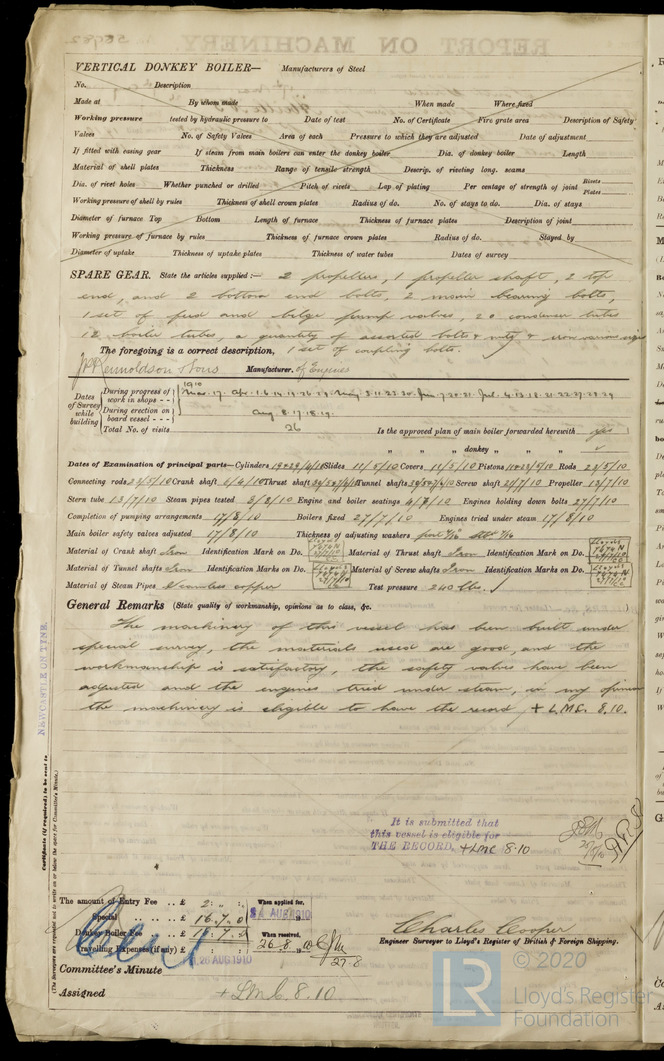 VERTICAL DONKEY BOILER— Manufacturers of Steel
No. Description
Made at By whom made When made Where fixed
Working pressure tested by hydraulic pressure to Date of test No. of Certificate Fire grate area Description of Safety
Valves No. of Safety Valves Area of each Pressure to which they are adjusted Date of adjustment
If fitted with easing gear If steam from main boilers can enter the donkey boiler Dia. of donkey boiler Length
Material of shell plates Thickness Range of tensile strength Descrip. of riveting long. seams
Dia. of rivet holes Whether punched or drilled Pitch of rivets Lap of plating Per centage of strength of joint Rivets Plates
Working pressure of shell by rules Thickness of shell crown plates Radius of do. No. of stays to do. Dia. of stays
Diameter of furnace Top Bottom Length of furnace Thickness of furnace plates Description of joint
Working pressure of furnace by rules Thickness of furnace crown plates Radius of do. Stayed by
Diameter of uptake Thickness of uptake plates Thickness of water tubes Dates of survey
SPARE GEAR. State the articles supplied:— 2 propellers, 1 propeller shaft, 2 top
end, and 2 bottom end bolts, 2 main bearing bolts,
1 set of feed and bilge pump valves, 20 condenser tubes
12 boiler tubes, a quantity of assorted bolts & nuts, & iron various sizes
The foregoing is a correct description, 1 set of coupling bolts.
J.P. Rennoldson & Sons Manufacturer. of Engines
Dates of Survey while building
During progress of work in shops - - 1910
During erection on board vessel - - - Aug 8.17.18.19.
Total No. of visits 26
Is the approved plan of main boiler forwarded herewith yes
" " " donkey " " "
Dates of Examination of principal parts—Cylinders 19&29/4/10 Slides 11/5/10 Covers 11/5/10 Pistons 11&23/5/10 Rods 23/5/10
Connecting rods 23/5/10 Crank shaft 6/6/10 Thrust shaft Tunnel shafts Screw shaft 21/7/10 Propeller 13/7/10
Stern tube 13/7/10 Steam pipes tested 8/8/10 Engine and boiler seatings 4/8/10 Engines holding down bolts 27/7/10
Completion of pumping arrangements 17/8/10 Boilers fixed 27/7/10 Engines tried under steam 17/8/10
Main boiler safety valves adjusted 17/8/10 Thickness of adjusting washers
Material of Crank shaft Iron Identification Mark on Do. Material of Thrust shaft Iron Identification Mark on Do.
Material of Tunnel shafts Iron Identification Marks on Do. Material of Screw shafts Iron Identification Marks on Do.
Material of Steam Pipes Seamless copper Test pressure 240 lbs.
General Remarks (State quality of workmanship, opinions as to class, &c.
The machinery of this vessel has been built under
special survey, the materials used are good, and the
workmanship is satisfactory, the safety valves have been
adjusted and the engines tried under steam, in my opinion
the machinery is eligible to have the record, + L.M.C. 8.10.
NEWCASTLE ON TYNE.
Certificate (if required) to be sent to
(The Surveyors are requested not to write on or below the space for Committee's Minute.)
It is submitted that
this vessel is eligible for
THE RECORD. + LMC 8.10
The amount of Entry Fee .. £ 2 : " : When applied for,
Special .. .. .. £ 16.7.0 AUG 1910
Donkey Boiler Fee .. .. £ When received,
Travelling Expenses (if any) £ 26.8.10
27.8
Charles Cooper
Engineer Surveyor to Lloyd's Register of British & Foreign Shipping.
Committee's Minute 26 AUG 1910
Assigned + LMC. 8.10.
© 2020
LR Lloyd's Register
Foundation